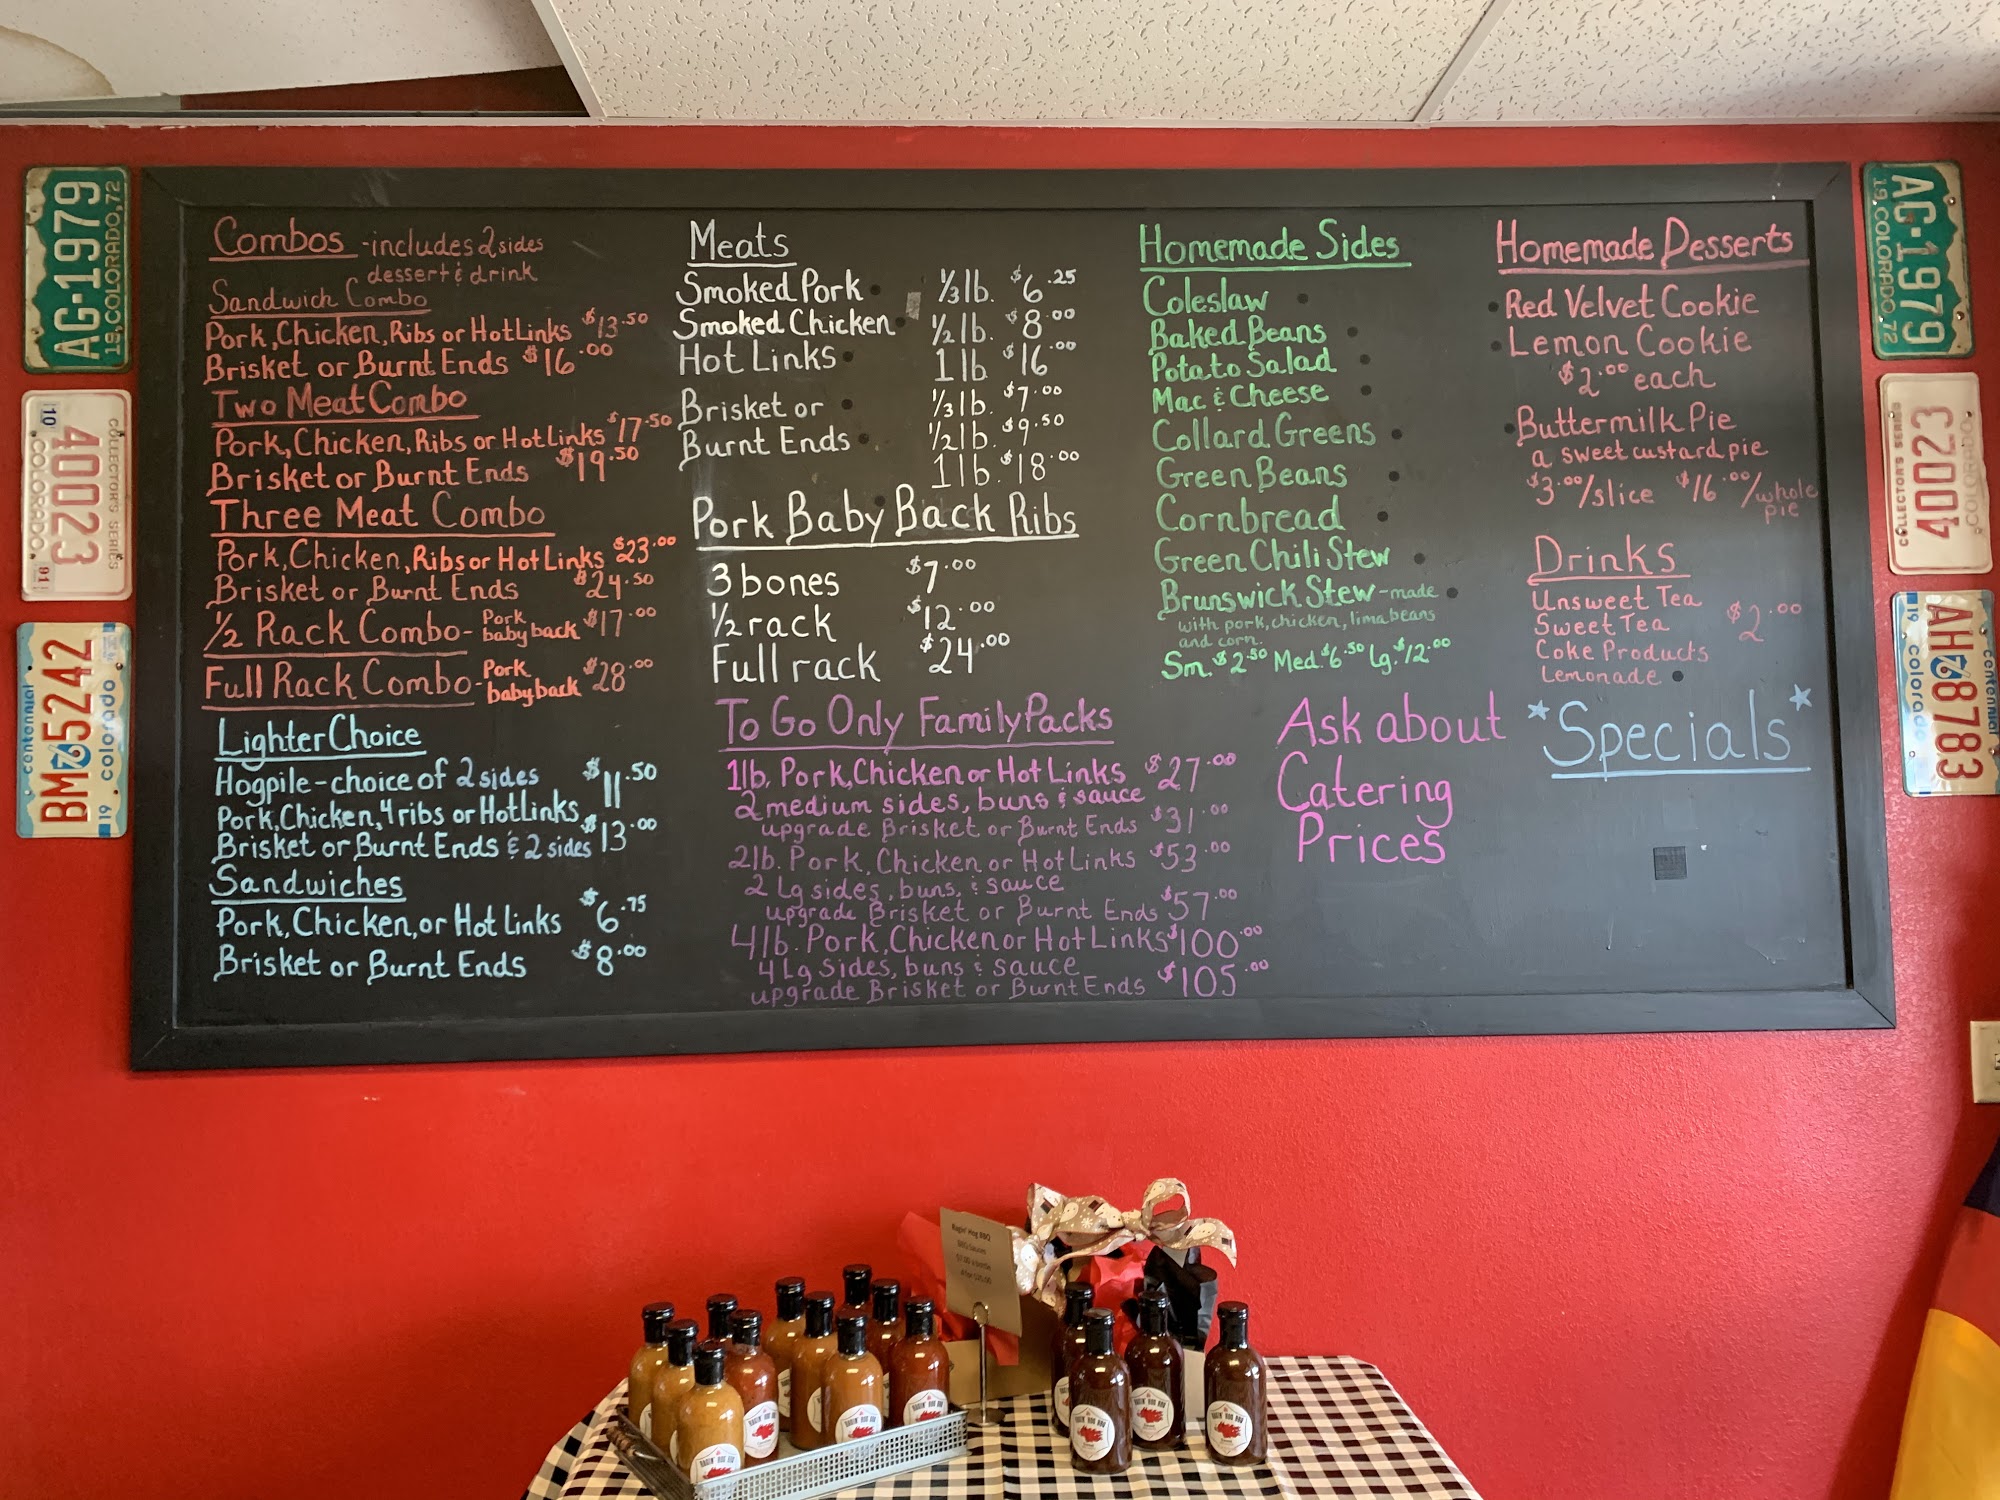 Combos - includes 2 sides
dessert & drink
Sandwich Combo
Pork, Chicken, Ribs or Hot Links $13.50
Brisket or Burnt Ends $16.00
Two Meat Combo
Pork, Chicken, Ribs or Hot Links $17.50
Brisket or Burnt Ends $19.50
Three Meat Combo
Pork, Chicken, Ribs or Hot Links $23.00
Brisket or Burnt Ends $24.50
1/2 Rack Combo - Pork baby back $17.00
Full Rack Combo - Pork baby back $28.00
Lighter Choice
Hogpile - choice of 2 sides $11.50
Pork, Chicken, 4 ribs or Hot Links
Brisket or Burnt Ends & 2 sides $13.00
Sandwiches
Pork, Chicken, or Hot Links $6.75
Brisket or Burnt Ends $8.00
Meats
Smoked Pork 1/3 lb. $6.25
Smoked Chicken 1/2 lb. $8.00
Hot Links 1 lb $16.00
Brisket or 1/3 lb. $7.00
Burnt Ends 1/2 lb. $9.50
1 lb. $18.00
Pork Baby Back Ribs
3 bones $7.00
1/2 rack $12.00
Full rack $24.00
To Go Only Family Packs
1 lb. Pork, Chicken or Hot Links $27.00
2 medium sides, buns & sauce
upgrade Brisket or Burnt Ends $31.00
2 lb. Pork, Chicken or Hot Links $53.00
2 Lg sides, buns, & sauce
upgrade Brisket or Burnt Ends $57.00
4 lb. Pork, Chicken or Hot Links $100.00
4 Lg Sides, buns & sauce
upgrade Brisket or Burnt Ends $105.00
Homemade Sides
Coleslaw
Baked Beans
Potato Salad
Mac & Cheese
Collard Greens
Green Beans
Cornbread
Green Chili Stew
Brunswick Stew - made
with pork, chicken, lima beans
and corn.
Sm. $2.50 Med. $6.50 Lg. $12.00
Ask about
Catering
Prices
Homemade Desserts
Red Velvet Cookie
Lemon Cookie
$2.00 each
Buttermilk Pie
a sweet custard pie
$3.00/slice $16.00/whole
pie
Drinks
Unsweet Tea
Sweet Tea $2.00
Coke Products
Lemonade
*Specials*
AG-1979
19, COLORADO, 72
COLLECTOR'S SERIES
40023
10 COLORADO 91
centennial
BM 76 5242
19 colorado
AG-1979
19 COLORADO, 72
COLLECTOR'S SERIES
40023
COLORADO
centennial
AH 76 8783
19 colorado
Ragin' Hog BBQ
BBQ Sauces
$7.00 a bottle
4 for $25.00
RAGIN' HOG BBQ
RAGIN' HOG BBQ
RAGIN' HOG BBQ